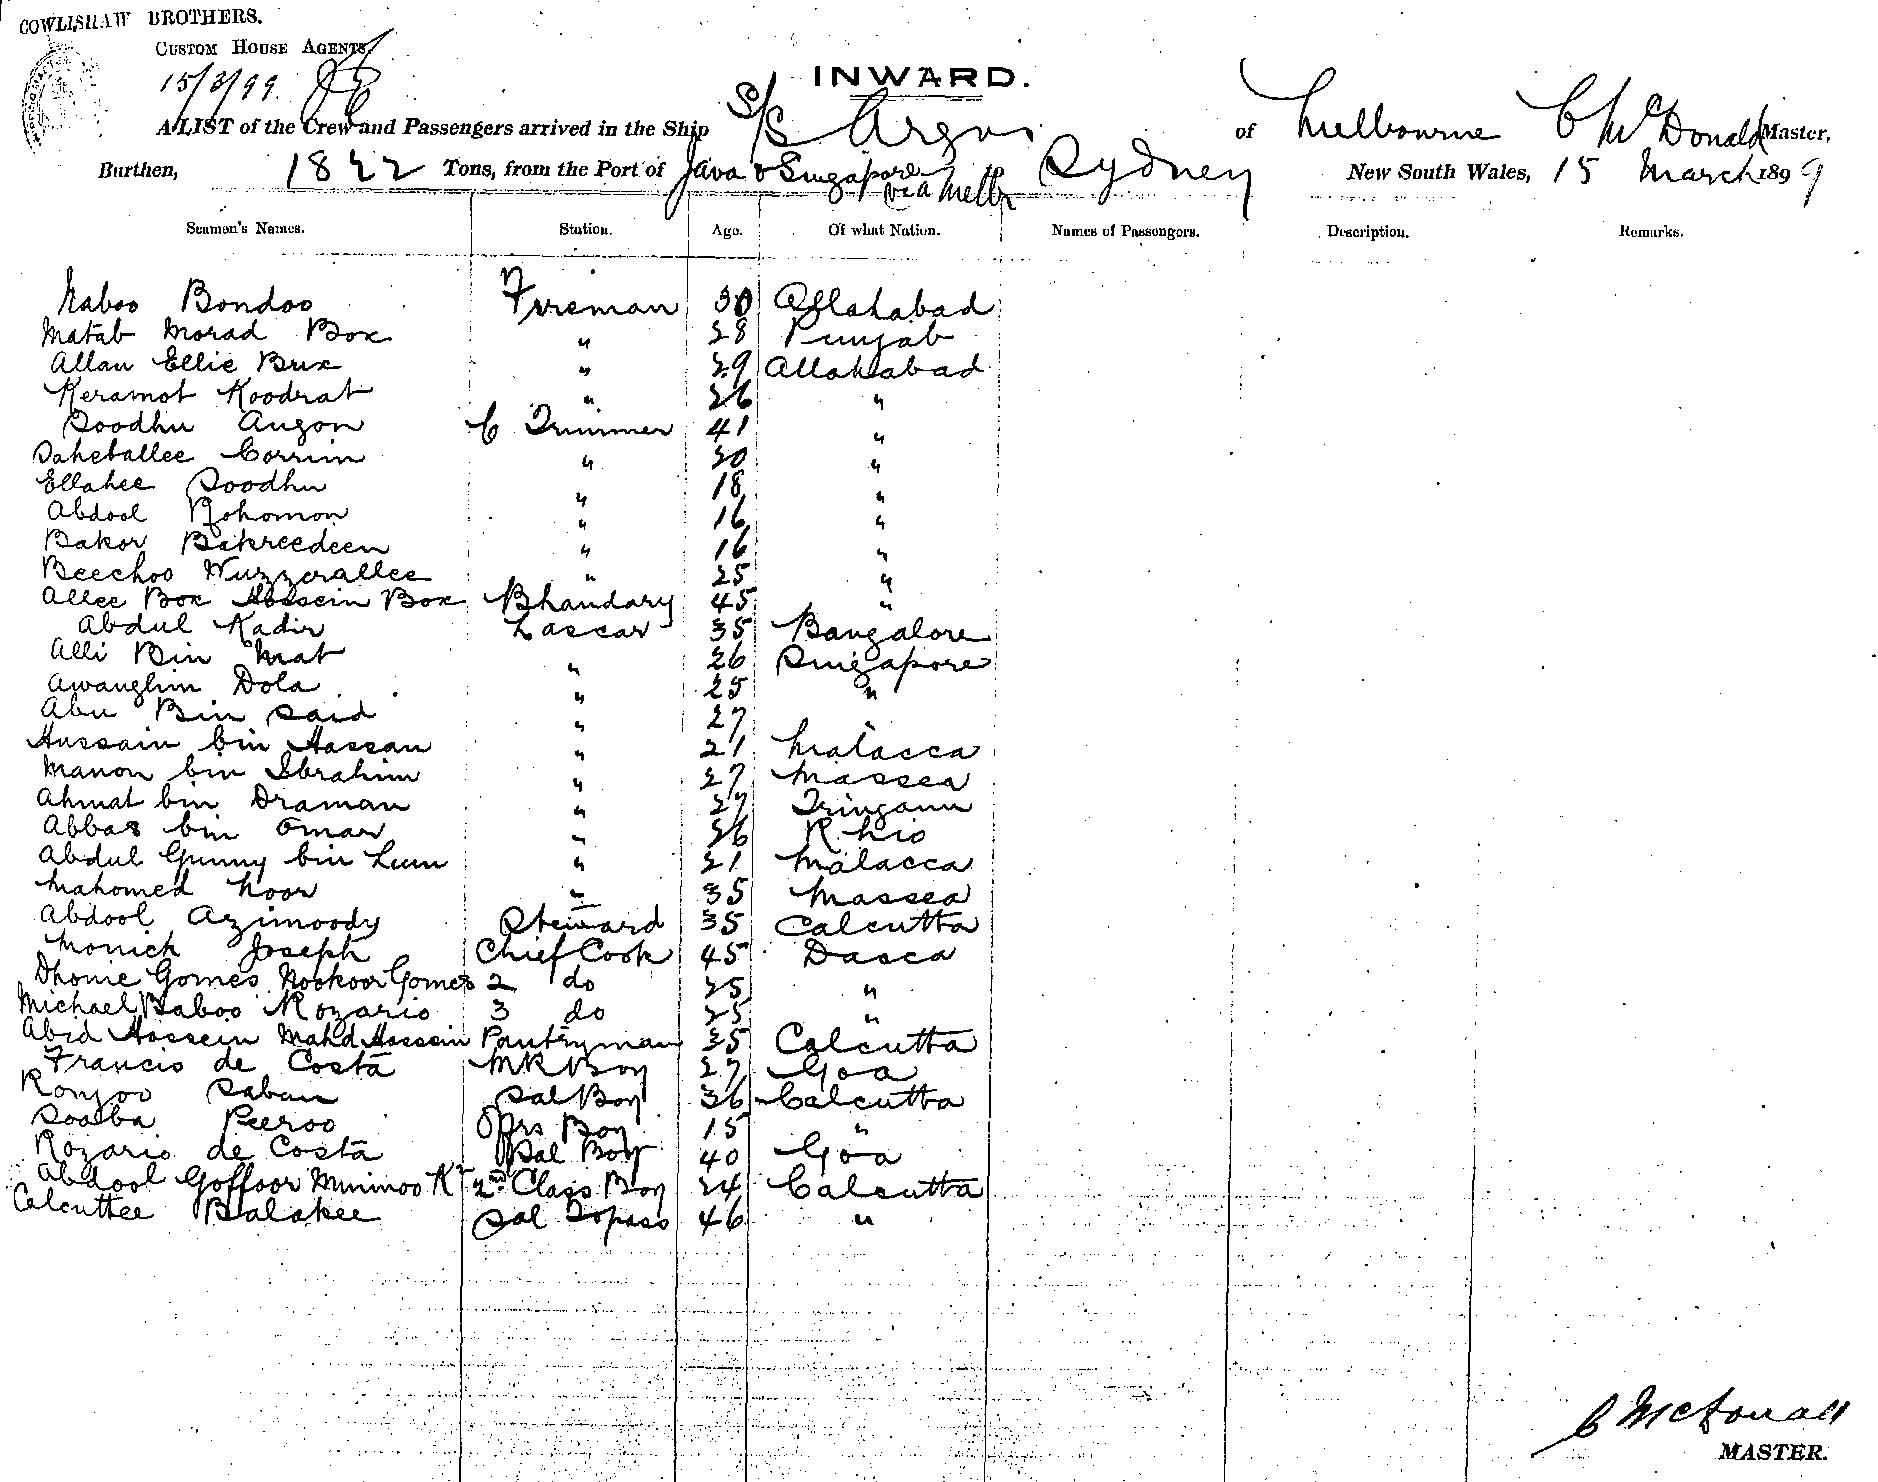 COWLISHAW BROTHERS.
CUSTOM HOUSE AGENTS,
15/3/99.
INWARD.
A LIST of the Crew and Passengers arrived in the Ship S/S Argus of Melbourne C McDonald Master,
Burthen, 1822 Tons, from the Port of Java & Singapore via Melb Sydney New South Wales, 15 March 1899
Seamen's Names. Station. Age. Of what Nation. Names of Passengers. Description. Remarks.
Naboo Bondoo Fireman 30 Allahabad
Matab Morad Box " 28 Punjab
Allan Ellie Bux " 29 Allahabad
Keramot Koodrat " 26 "
Soodhu Augon C Trimmer 41 "
Saheballee Corrim " 20 "
Ellahee Soodhu " 18 "
Abdool Rohomon " 16 "
Bakor Bakreedeen " 16 "
Beechoo Wuzzerallee " 25 "
Allee Box Hossein Box Bhandary 45 "
Abdul Kadir Lascar 35 Bangalore
Alli Bin Mat " 26 Singapore
Awanglim Dola " 25 "
Abu Bin Said " 27 "
Hussain bin Hassan " 21 Malacca
Manon bin Ibrahim " 27 Massea
Ahmat bin Draman " 27 Tringanu
Abbas bin Omar " 26 Rhio
Abdul Gunny bin Lum " 21 Malacca
Mahomed Noor " 35 Massea
Abdool Azimoody Steward 35 Calcutta
Monich Joseph Chief Cook 45 Dacca
Dhome Gomes Nookoor Gomes 2 do 25 "
Michael Baboo Rozario 3 do 25 "
Abid Hossein Mahd Hossein Pantryman 35 Calcutta
Francis de Costa MR Boy 27 Goa
Ronjoo Saban Sal Boy 36 Calcutta
Soaba Peeroo Offrs Boy 15 "
Rozario de Costa Sal Boy 40 Goa
Abdool Goffoor Minimoo K 2nd Class Boy 24 Calcutta
Calcuttee Balakee Sal Topass 46 "
C McDonald
MASTER.